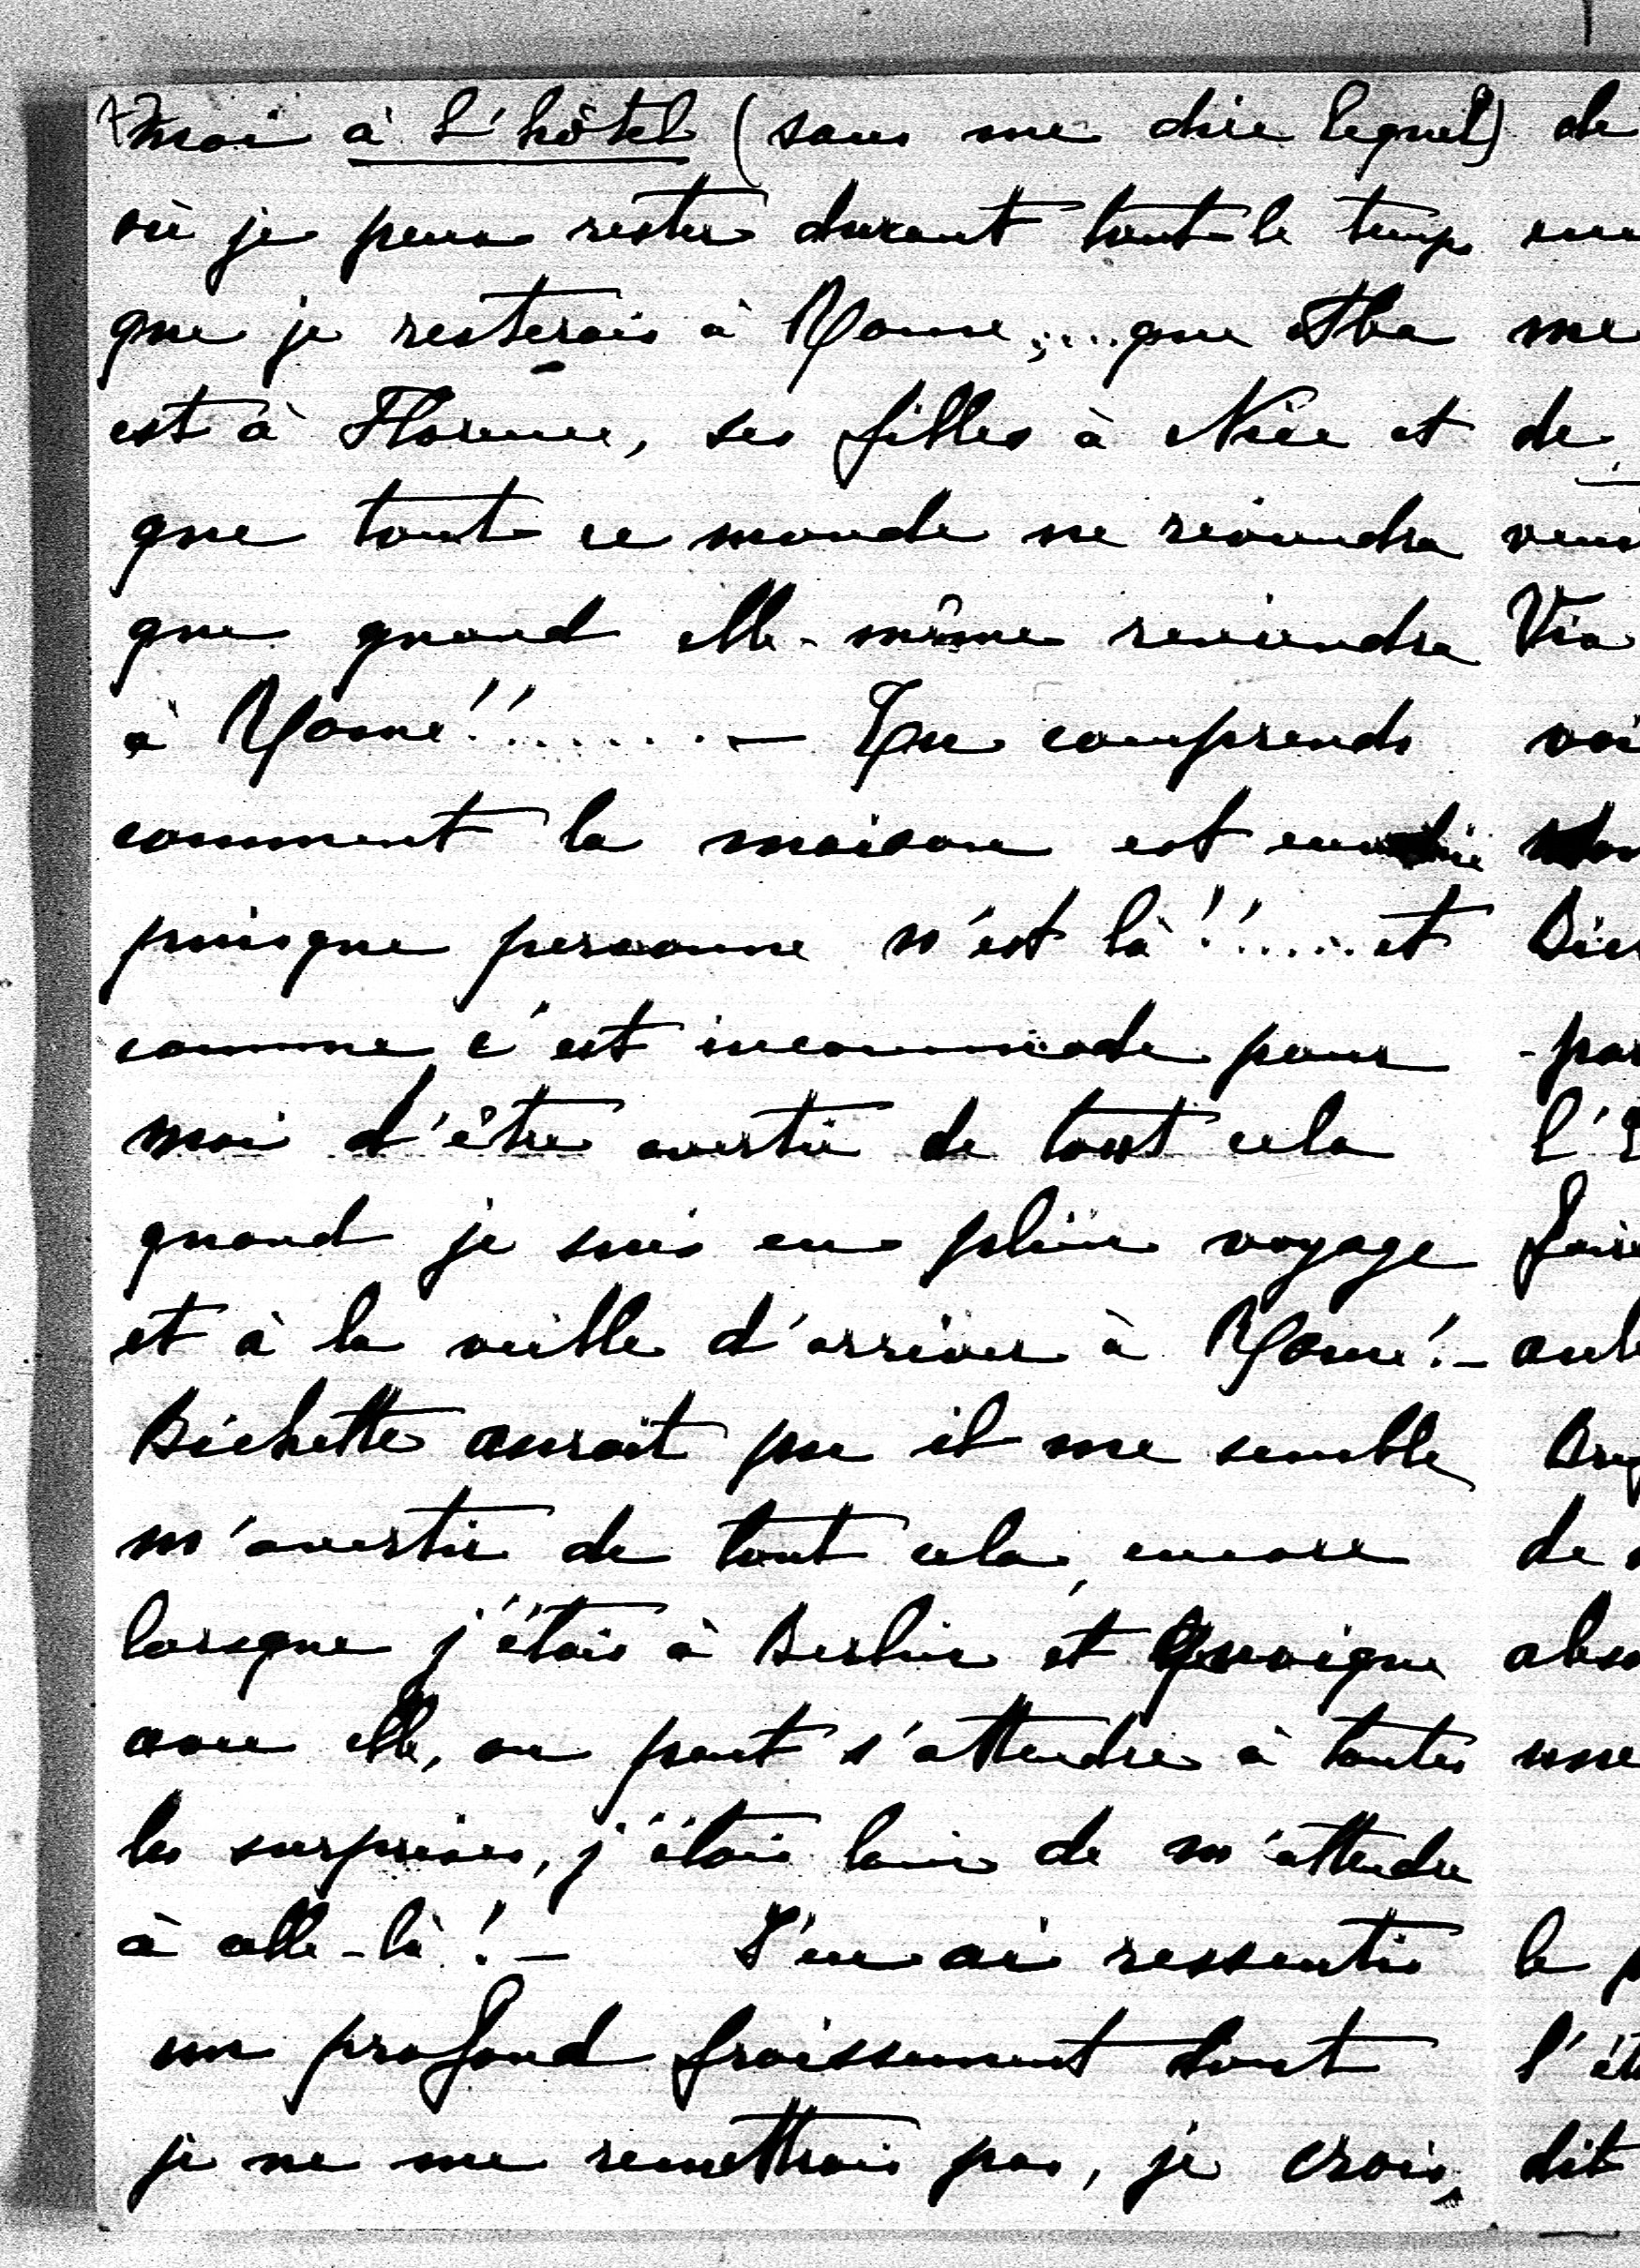 moi à l'hôtel (sans me dire lequel)
où je peux rester durant tout le temps
que je resterais à Rome;... que Aba
est à Florence, ses filles à Nice et
que tout ce monde ne reviendra
que quand elle-même reviendra
à Rome!!....... — Tu comprends
comment la maison est
puisque personne n'est là!!..... et
comme c'est incommode pour
moi d'être avertie de tout cela
quand je suis en plein voyage
et à la veille d'arriver à Rome! —
Bichette aurait pu il me semble
m'avertir de tout cela, encore
lorsque j'étais à Berlin et quoique
avec elle, on peut s'attendre à toutes
les surprises, j'étais loin de m'attendre
à celle-là! — J'en ai ressenti
un profond froissement dont
je ne me remettrais pas, je crois,
de
me
de
Via
l'
de
le
dit